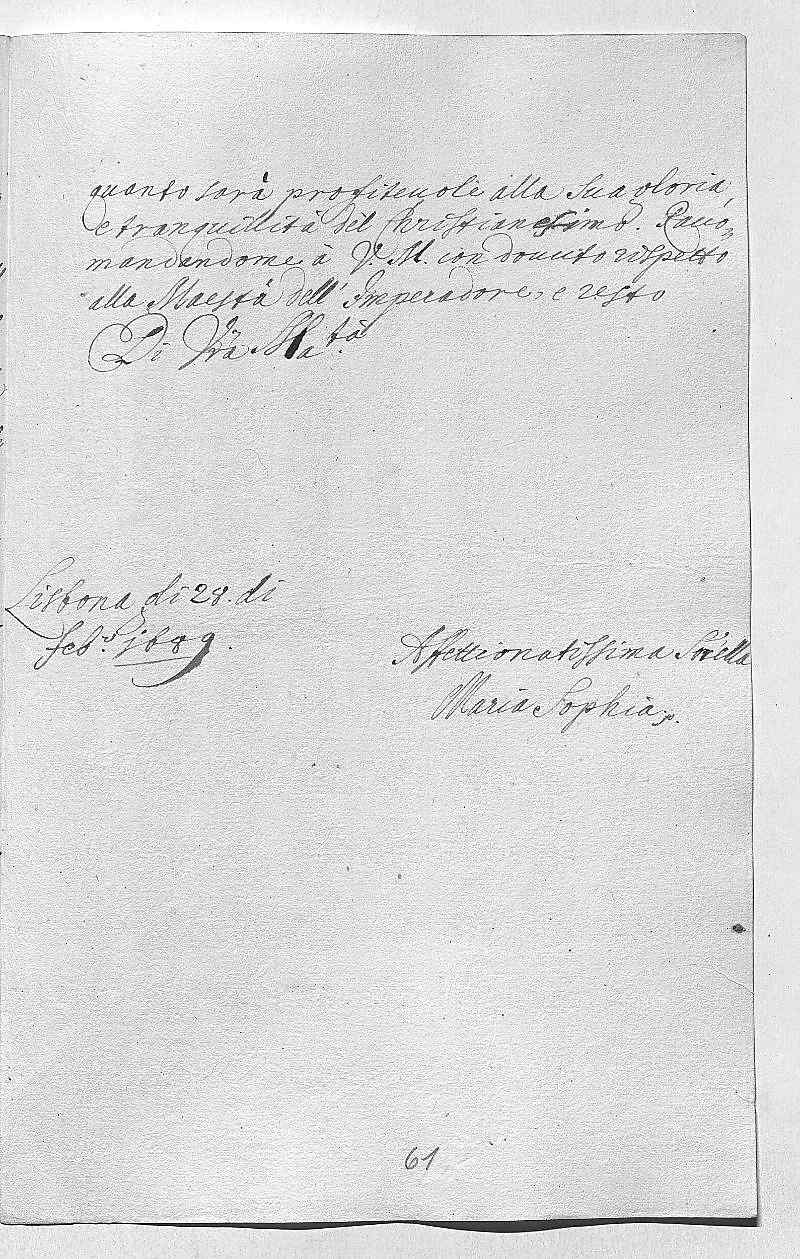 quanto sarà profiteuole alla sua gloria,
e tranquillità del Christianesimo.
mandandome à V. M. con douuto rispetto
alla Maestà dell' Imperadore, e resto
Di Vra Mata.
Lisbona di 28. di
feb.ro 1689.
Affettionatissima Sorella
Maria Sophia
61